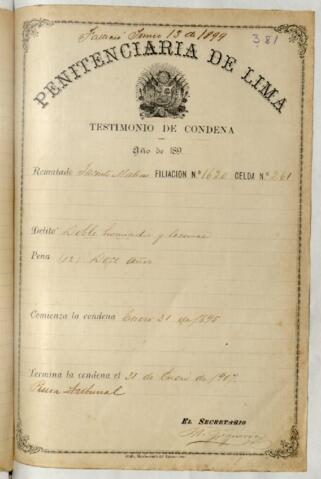 Falleció Junio 13 de 1899
381
PENITENCIARIA DE LIMA
TESTIMONIO DE CONDENA
Año de 189
Rematado Jacinto FILIACION N.º 1620 CELDA N.º 261
Delito Doble homicidio y lesiones
Pena (12) Doce años
Comienza la condena Enero 31 de 1895
Termina la condena el 31 de Enero de 1907
Tribunal
EL SECRETARIO